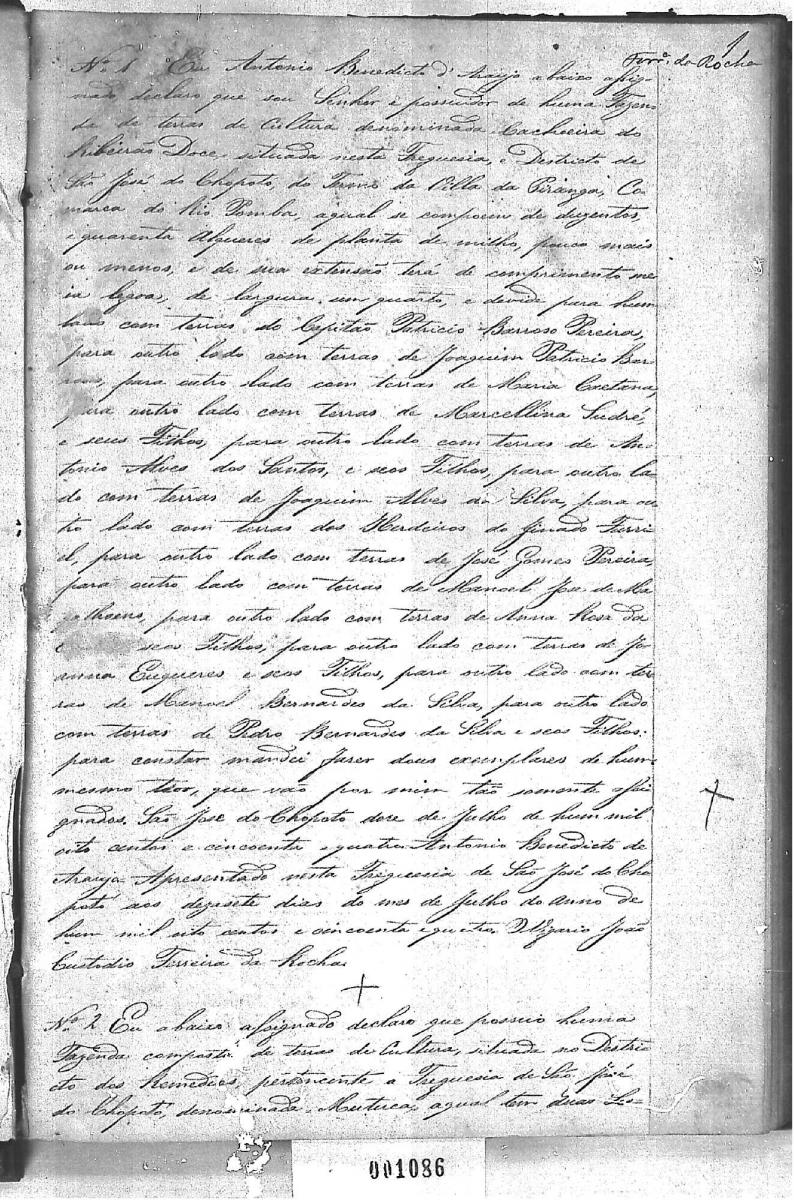 1
Ferr.ª da Rocha
Nº 1 Eu Antonio Benedicto d'Araujo abaixo assig-
nado, declaro que sou Senhor e possuidor de huma Fazen-
da de terras de Cultura denominada Cachoeira do
Ribeirão Doce, situada nesta Freguesia, e Districto de
São José do Chopotó, do Termo da Villa da Piranga, Co-
marca do Rio Pomba, aqual se compoem de duzentos,
e quarenta Alqueres de planta de milho, pouco mais
ou menos, e de sua extensão terá de comprimento me-
ia legoa, de largura um quarto, e devide para hum
lado com terras do Capitão Patricio Barroso Pereira,
para outro lado com terras de Joaquim Patricio Bar-
roso, para outro lado com terras de Maria Caetana,
para outro lado com terras de Marcellina Sudré,
e seus Filhos, para outro lado com terras de An-
tonio Alves dos Santos, e seos Filhos, para outro la-
do com terras de Joaquim Alves da Silva, para ou-
tro lado com terras dos Herdeiros do finado Furri-
el, para outro lado com terras de José Gomes Pereira,
para outro lado com terras de Manoel José de Ma-
galhaens, para outro lado com terras de Anna Rosa da
seos Filhos, para outro lado com terras de Jo-
anna e seos Filhos, para outro lado com ter-
ras de Manoel Bernardes da Silva, para outro lado
com terras de Pedro Bernardes da Silva e seos Filhos:
para constar mandei faser dous exemplares de hum
mesmo teor, que vão por mim tão somente assi-
gnados. São José do Chopotó dose de Julho de hum mil
oito centos e cincoenta equatro. Antonio Benedicto de
Araujo. Apresentado nesta Freguesia de São José do Cho-
potó aos desasete dias do mes de Julho do Anno de
hum mil oito centos e cincoenta equatro. O Vigario João
Custodio Ferreira da Rocha.
Nº 2 Eu abaixo assignado declaro que possuo huma
Fazenda composta de terras de Cultura, situada no Destri-
cto dos Remedios, pertencente a Freguesia de São José
do Chopotó, denominada Mutuca, aqual tem duas Le-
001086